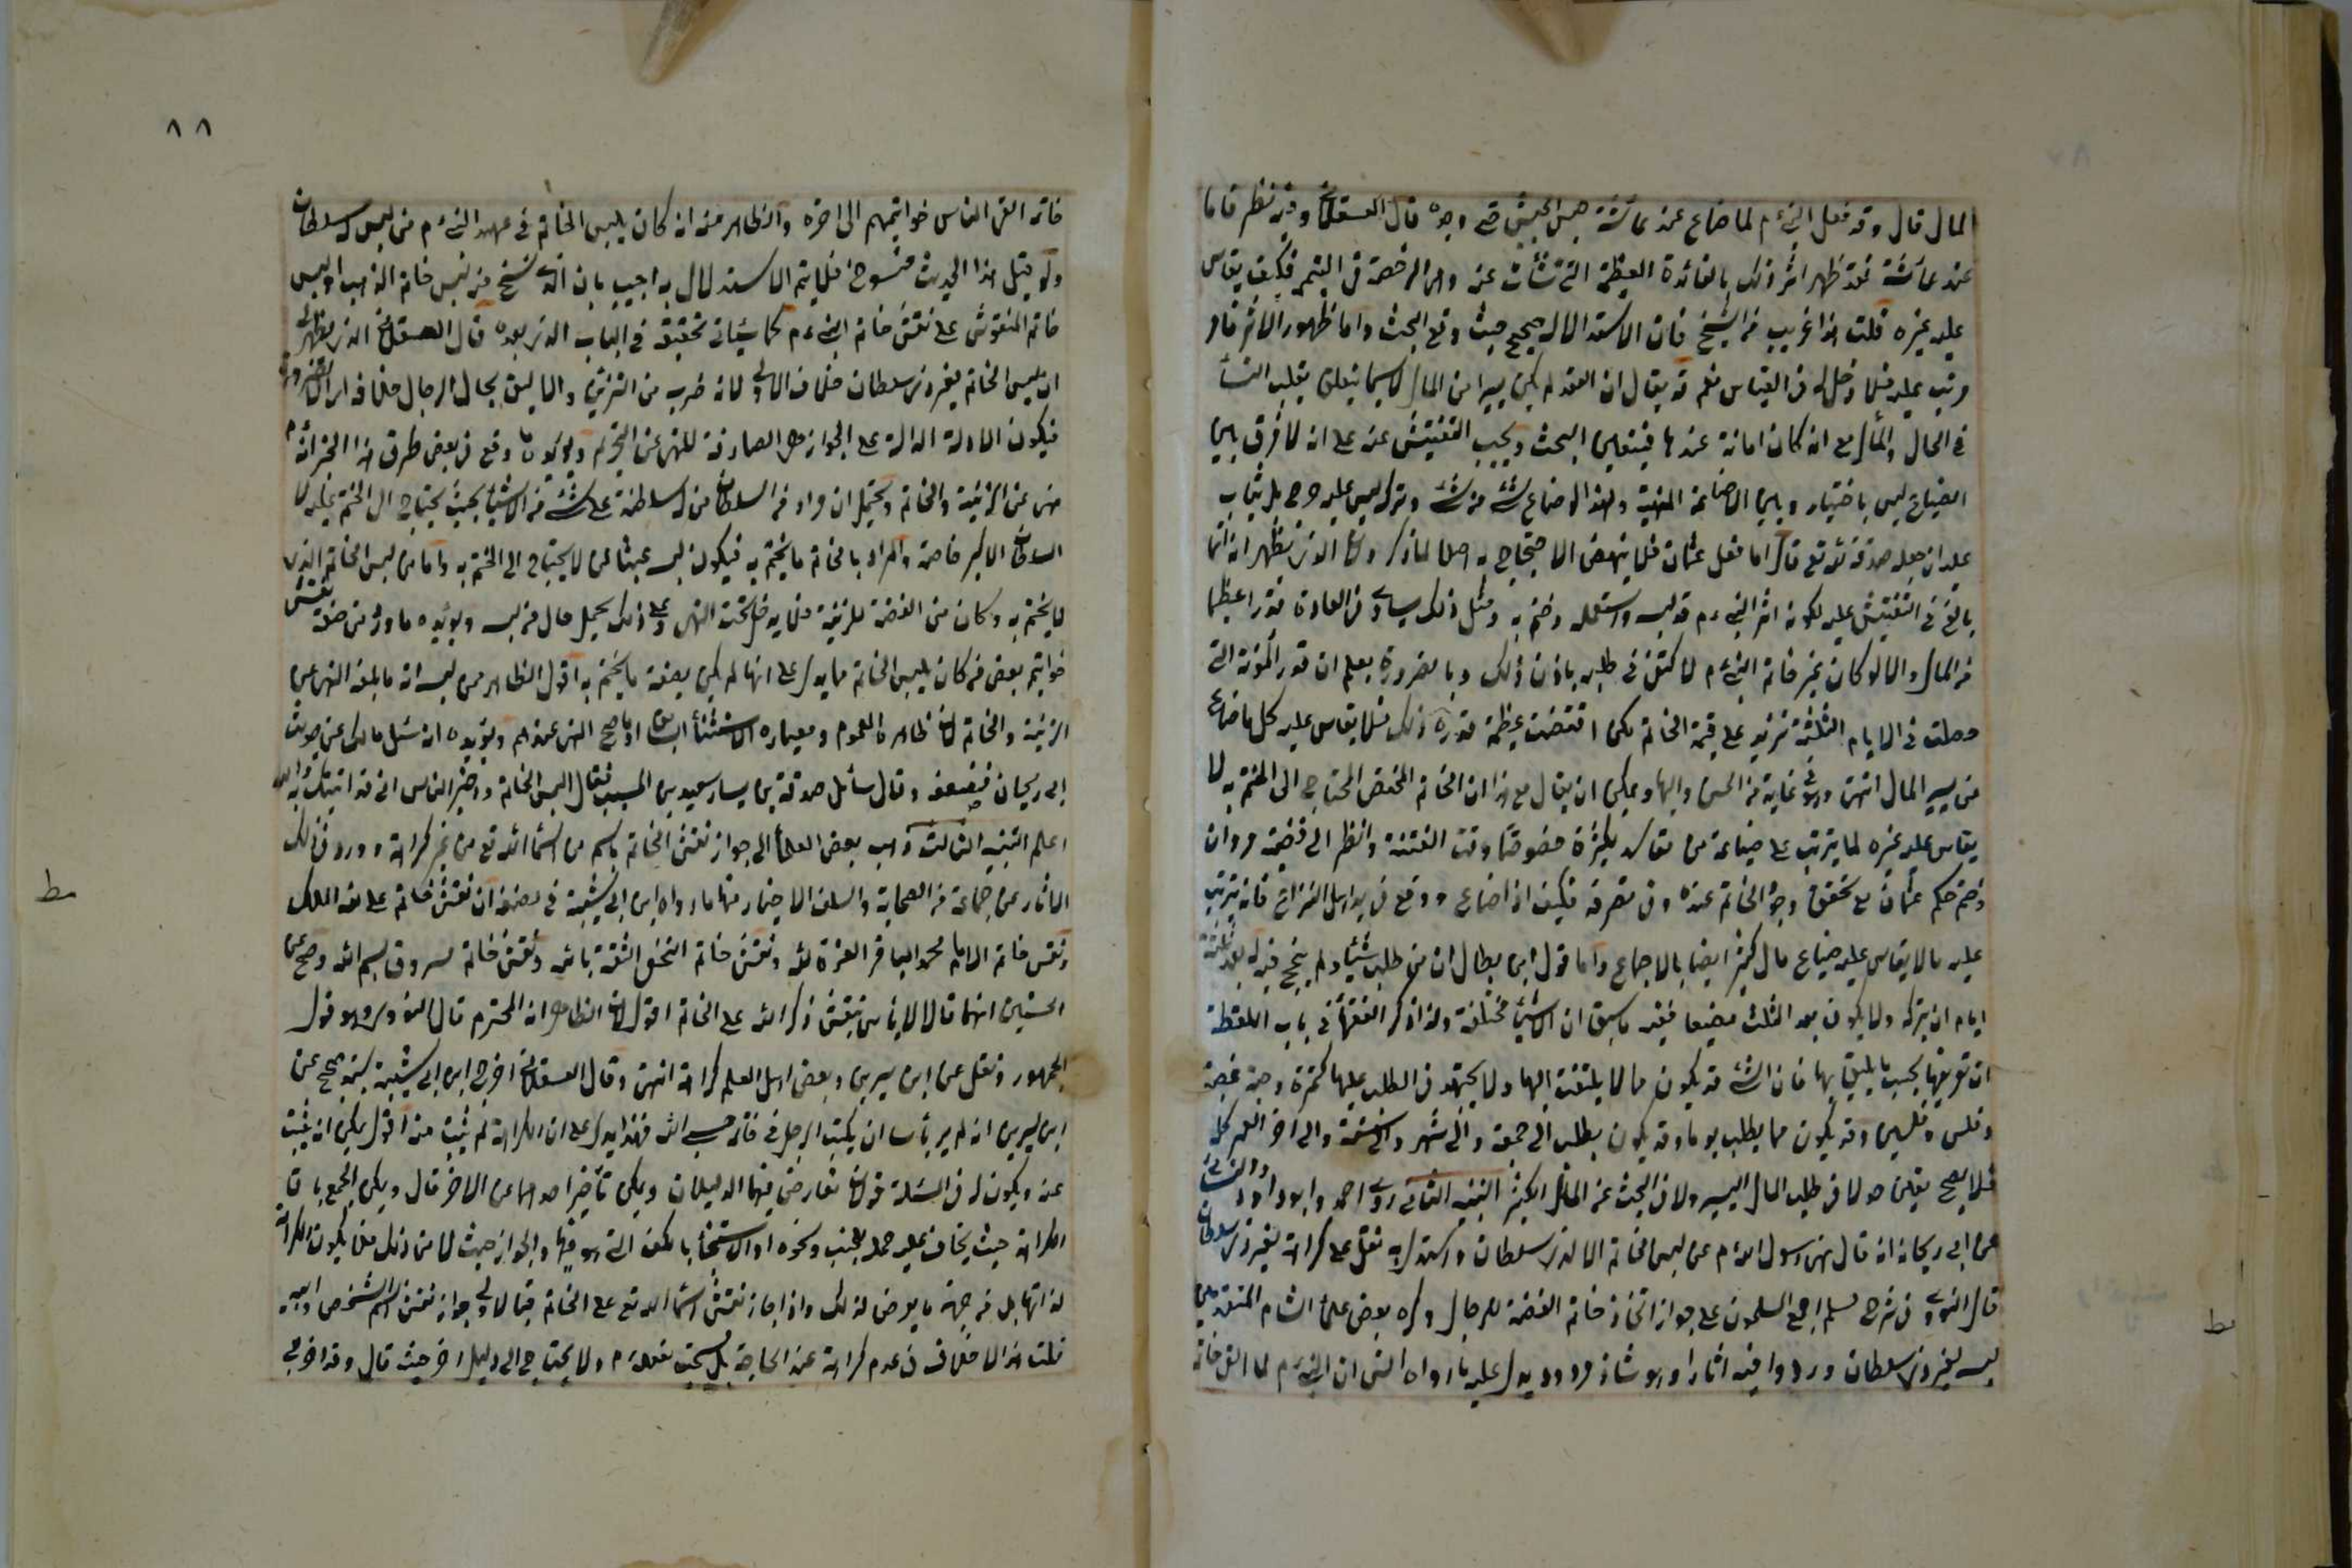 المال قال وقد فعل النبى م لما ضاع عقد عائشة حبس الجيش حتى وجده قال العسقلانى وفيه نظر فاما
عقد عائشة فقد ظهر اثر ذلك بالفائدة العظيمة التى نشأت عنه وهى الرخصة فى التيمم فكيف يقاس
عليه غيره قلت هذا غريب من الشيخ فان الاستدلال صحيح حيث وقع البحث واما ظهور الاثر فامر
مرتب عليه فلا دخل له فى القياس نعم قد يقال ان العقد لم يكن يسيرا من المال لاسيما يتعلق بقلب النسأ
فى الحال والمآل مع انه كان امانة عندها فيتعين البحث ويجب التفتيش عنه على انه لا فرق بين
الضياع ليس باختيار وبين الاضاعة المنهية ولهذا لو ضاع شئ من شئ وتركه ليس عليه حرج بل يثاب
عليه ان جعله صدقة لله تع قال اما فعل عثمان فلا ينهض الاحتجاج به اصلا لما ذكر ولان الذى يظهر انه انما
بالغ فى التفتيش عليه لكونه اثر النبى ءم قد لبسه واستعمله وختم به ومثل ذلك يساوى فى العادة قدرا عظيما
من المال والا لو كان غير خاتم النبى ءم لاكتفى فى طلبه بدون ذلك وبالضرورة يعلم ان قدر المؤنة التى
حصلت فى الايام الثلثة تزيد على قيمة الخاتم لكن اقتضت عظمة قدره ذلك فلا يقاس عليه كل ما ضاع
من يسير المال انتهى وهو فى غاية من الحسن والبهاء ويمكن ان يقال مع هذا ان الخاتم المختص المحتاج الى الختم به لا
يقاس عليه غيره لما يترتب على ضياعه من مفاسد كثيرة خصوصا وقت الفتنة وانظر الى قضية مروان
وختم حكم عثمان مع تحقق وجود الخاتم عنده وفى تصرفه فكيف اذا ضاع ووقع فى يد اهل النزاع فانه يترتب
عليه ما لا يقاس عليه ضياع مال كثير ايضا بالاجماع واما قول ابن بطال ان من طلب شيئا ولم ينجح فيه له بعد ثلثة
ايام ان يتركه ولا يكون بعد الثلث مضيعا ففيه ما سبق ان الاشياء مختلفة ولذا ذكر الفقهاء فى باب اللقطة
ان تعريفها بحسب ما يليق بها فان الشئ قد يكون مما لا يلتفت اليها ولا يجتهد فى الطلب عليها كتمرة وحبة
وفلس وفلسين وقد يكون مما يطلب يوما وقد يكون يطلب الى جمعة والى شهر والى سنة والى اخر العمر كله
فلا يصح تعيين حد لا فى طلب المال اليسير ولا فى البحث عن المال الكثير التنبيه الثانى روى احمد وابو داود والنسائى
عن ابى ريحانة انه قال نهى رسول الله ءم عن لبس الخاتم الا لذى سلطان واستدل به نقل على كراهة لغير ذى سلطان
قال النووى فى شرح مسلم اجمع المسلمون على جواز اتخاذ خاتم الفضة للرجال وكره بعض علماء الشام المتقدمين
لبسه لغير ذى سلطان ورووا فيه اثارا وهو شاذ مردود يدل عليه ما رواه انس ان النبى ءم لما القى خاتمه
٨٨
خاتمه القى الناس خواتيمهم الى اخره والظاهر منه انه كان يلبس الخاتم فى عهد النبى ءم من ليس له سلطان
ولو قيل هذا الحديث منسوخ فلا يتم الاستدلال به اجيب بان الذى نسخ منه لبس خاتم الذهب او لبس
خاتم المنقوش على نقش خاتم النبى ءم كما سيأتى تحقيقه فى الباب الذى بعده قال العسقلانى الذى يظهر لى
ان لبس الخاتم لغير ذى سلطان خلاف الاولى لانه ضرب من التزين والاليق بحال الرجال خلافه
فيكون الادلة الدالة على الجواز هى الصارفة للنهى عن التحريم ويؤيده ما وقع فى بعض طرق هذا الخبر انه م
نهى عن الزينة والخاتم ويحتمل ان المراد من السلطان من له سلطنة على شئ من الاشياء بحيث يحتاج الى الختم عليه لا
السلطان الاكبر خاصة والمراد بالخاتم ما يختم به فيكون لبسه عبثا لمن لا يحتاج الى الختم به واما من لبس الخاتم الذى
لا يختم به وكان من الفضة للزينة فلا يدخل تحت النهى وعلى ذلك يحمل حال من لبسه ويؤيده ما ورد من صفة نقش
خواتيم بعض من كان يلبس الخاتم مما يدل على انها لم يكن بصفة ما يختم به اقول الظاهر من لبسه انه ما بلغه النهى عن
الزينة والخاتم لان ظاهره العموم ومعياره الاستثناء السابق او ما صح النهى عندهم ويؤيده انه سئل مالك عن حديث
ابى ريحانة فضعفه وقال سأل صدقة بن يسار سعيد بن المسيب فقال البس الخاتم واخبر الناس انى قد افتيتك به والله
اعلم التنبيه الثالث ذهب بعض العلماء الى جواز نقش الخاتم باسم من اسماء الله تع من غير كراهة وورد فى ذلك
الاثار عن جماعة من الصحابة والسلف الاخيار منها ما رواه ابن ابى شيبة فى مصنفه ان نقش خاتم على لله الملك
ونقش خاتم الامام محمد الباقر العزة لله ونقش خاتم النخعى الثقة بالله ونقش خاتم مسروق بسم الله وصح عن
الحسنين انهما قالا لا بأس بنقش ذكر الله على الخاتم اقول لان الظاهر انه المحترم قال النووى وهو قول
الجمهور ونقل عن ابن سيرين وبعض اهل العلم كراهة انتهى وقال العسقلانى اخرج ابن ابى شيبة بسند صحيح عن
ابن سيرين انه لم ير بأسا ان يكتب الرجل فى خاتمه حسبى الله فهذا يدل على ان الكراهة لم يثبت عنه اقول يمكن ان يثبت
عنه ويكون له فى المسئلة قولان تعارض فيهما الدليلان ويمكن تأخير احدهما عن الاخر قال ويمكن الجمع بان
الكراهة حيث يخاف عليه حمله للجنب ونحوه او الاستنجاء بالكف التى هو فيها والجواز حيث الامن من ذلك فلا يكون الكراهة
لذاتها بل من جهة ما يعرض لذلك واذا جاز نقش اسماء الله تع على الخاتم فبالاولى جواز نقش اسم الشخص وابيه
قلت هذا لا خلاف فى عدم كراهة عند الحاجة بل يستحب لفعله ءم ولا يحتاج الى دليل اخر حيث قال وقد اخرج
ط
ط